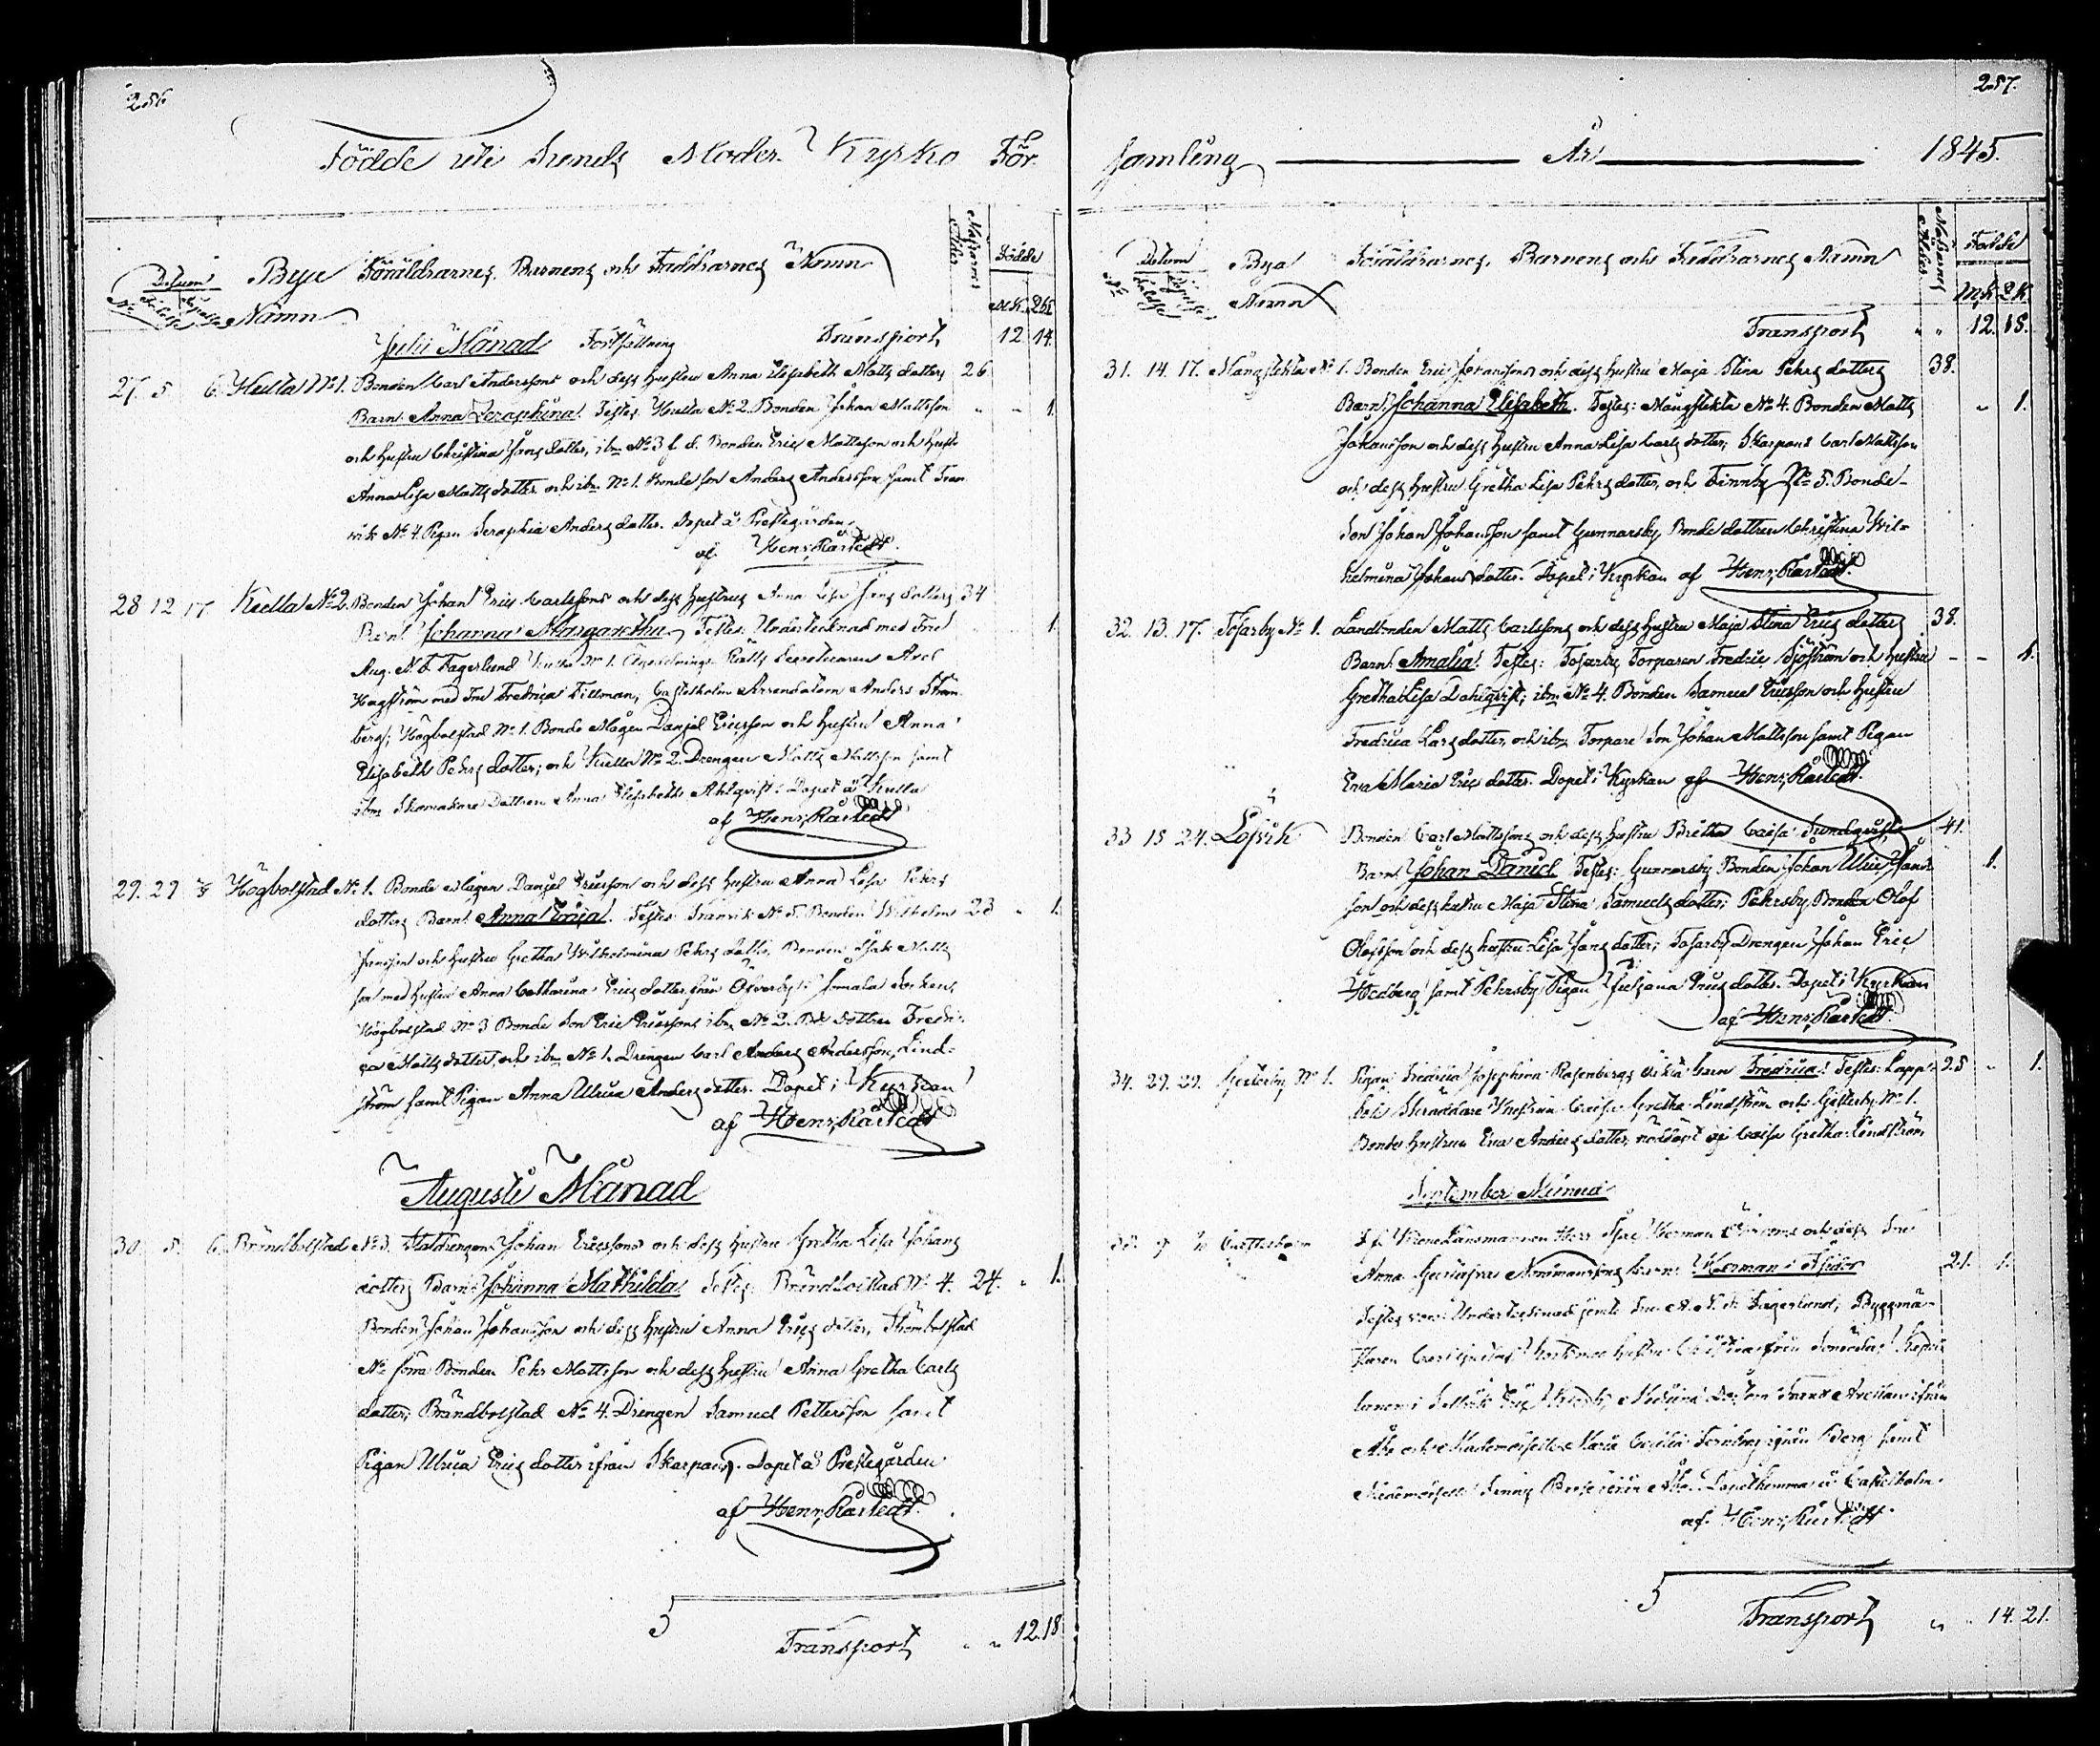 256
Födde uti Sunds Moder Kyrko För
Datum
No
Födelse
Döpelse
Bya
Namn
Föräldrarnes, Barnens och Faddrarnes Namn
Mödrarnes Ålder
Födde
M.K. Q.K.
Julii Månad Fortsättning Transport 12 14.
27. 5 6. Kulla No 1. Bonden Carl Anderssons och dess hustru Anna Elisabeth Matts dotters 26
Barn: Anna Seraphina. Testes: Kulla No 2. Bonden Johan Mattsson 1.
och hustru Christina Jans dotter, ibm No 3 Bonden Eric Mattsson och hustru
Anna Lisa Matts dotter och ibm No 1. Bonde son Anders Andersson samt Tran
vik No 4. Pigan Seraphia Anders dotter. Döpet å Prestegården
af Henr. Råstedt.
28 12 17. Kulla No 2. Bonden Johan Eric Carlssons och dess hustrus Anna Lisa Jans dotters 34
Barn: Johanna Margaretha Testes: Undertecknad med Fru 1.
Aug. N. F. Fagerlund Kulla No 1. Rätts Secreteraren Axel
Hagström med Fru Fredrica Tillman, Castelholm Arrendatorn Anders Ström
berg; Högbolstad No 1. Bonde Mågen Danjel Ericsson och hustru Anna
Elisabeth Pehrs dotter; och Kulla No 2. Drengen Matts Mattsson samt
ibm Skomakare Dottren Anna Elisabeth Ahlqvist. Döpet å Kulla
af Henr. Råstedt
29. 29 Högbolstad No 1. Bonde Mågen Danjel Ericsson och dess hustru Anna Lisa Pehrs
dotters Barn: Anna Erica. Testes: Tranvik No 5. Bonden Wilhelm 23 1.
Jansson och hustru Gretha Wilhelmina Pehrs dotter, Bonden Isak Matts
son med hustru Anna Catharina Erics dotter från Öfverby i Jomala Socken,
Högbolstad No 3 Bonde Son Eric Ericssons ibm No 2. Bde dottren Fredri-
ca Matts dotter, och ibm No 1. Drengen Carl Anders Andersson, Lind-
ström samt Pigan Anna Ulrica Anders dotter. Döpet i Kyrkan
af Henr. Råstedt
Augusti Månad
30. 5. 6. Brändbolstad No 3. Johan Ericssons och dess hustru Gretha Lisa Johans
dotters Barn: Johanna Mathilda Testes: Brändbolstad No 4. 24. 1.
Bonden Johan Johansson och dess hustru Anna Erics dotter, Strömbolstad
No Bonden Pehr Mattsson och dess hustru Anna Gretha Carls
dotter; Brändbolstad No 4. Drengen Samuel Pettersson samt
Pigan Ulrica Erics dotter ifrån Skarpans. Döpet å Prestegården
af Henr. Råstedt.
5 Transport 12. 18
257.
samling År 1845.
Datum
No
Födelse
Döpelse
Bya
Namn
Föräldrarnes, Barnens och Faddrarnes Namn
Mödrarnes Ålder
Födde
M.K. Q.K.
Transport 12. 18.
31. 14. 17. Mångstekta No 1. Bonden Eric Johanssons och dess hustru Maja Stina Pehrs dotters 38.
Barn: Johanna Elisabeth. Testes: Mångstekta No 4. Bonden Matts 1.
Johansson och dess hustru Anna Lisa Carls dotter; Skarpans Carl Mattsson
och dess hustru Gretha Lisa Pehrs dotter, och Finnby No 5. Bonde-
son Johan Johansson samt Gunnarsby Bonde dottren Christina Wil-
helmina Johans dotter. Döpet i Kyrkan af Henr. Råstedt.
32. 13. 17. Tosarby No 1. Landbonden Matts Carlssons och dess hustru Maja Stina Erics dotters 38.
Barn: Amalia. Testes: Tosarby Torparen Fredric Sjöström och hustru 1.
Gretha Lisa Dahlqvist; ibm No 4. Bonden Samuel Ericsson och hustru
Fredrica Lars dotter, och ibm Torpare Son Johan Mattsson samt Pigan
Eva Maria Erics dotter. Döpet i Kyrkan af Henr. Råstedt.
33 15 24. Löfvik Bonden Carl Mattssons och dess hustru Britha Caisa Sundqvists 41.
Barn: Johan Daniel Testes: Gunnarsby Bonden Johan Ulric Jans 1.
son och dess hustru Maja Stina Samuels dotter; Pehrsby Bonden Olof
Olofsson och dess hustru Lisa Jans dotter; Tosarby Drengen Johan Eric
Hedberg samt Pehrsby Pigan Juliana Erics dotter. Döpet i Kyrkan
af Henr. Råstedt.
34. 29. 29. Gesterby No 1. Pigan Fredrica Josephina Rosenbergs oäkta barn Fredrica. Testes: Lapp- 25 1.
bole Skräddare hustrun Caisa Gretha Lindström och Gesterby No 1.
Bonde hustrun Eva Anders dotter, nöddöpt af Caisa Gretha Lindström
September Månad
35. 9 Castelholm Kronolänsmannen Herr Isac Herman och dess Fru
Anna Gustafva barn: Herman Isidor 21. 1.
Testes voro: Undertecknad jemte Fru A. N. F. Fagerlund, Byggmä-
och Mademoiselle Maria Cecilia ifrån Berg samt
Mademoiselle Fanny ifrån Åbo. Döpet hemma å Castelholm
af Henr. Råstedt
5 Transport 14. 21.